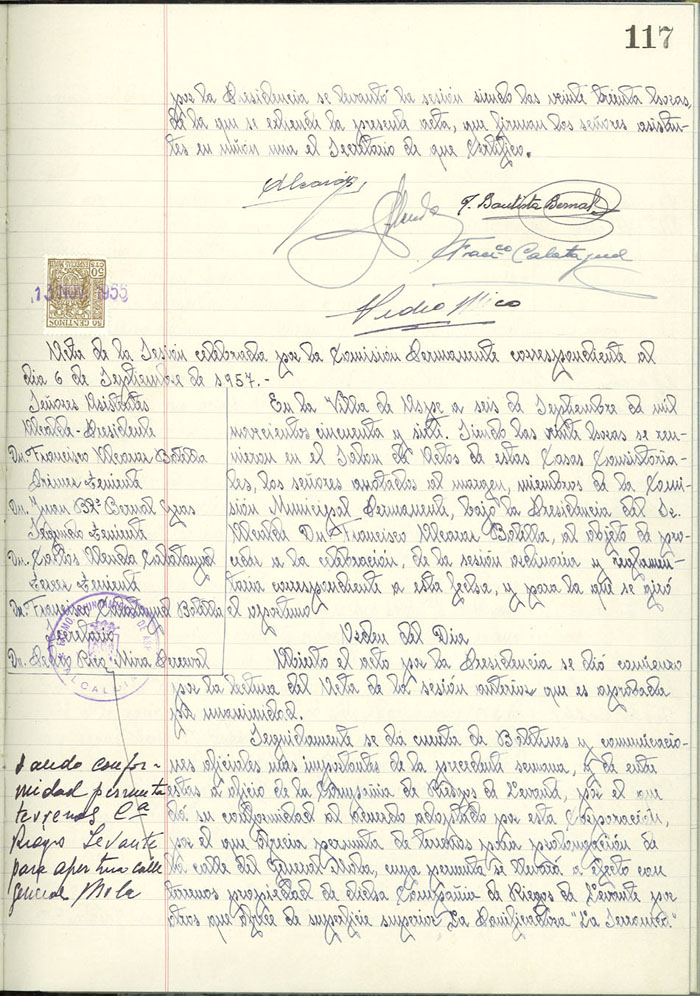 117
por la Presidencia se levantó la sesión siendo las veinte treinta horas,
de la que se extiende la presente acta, que firman los señores asistentes
tes en unión una el Secretario de que Certifico.
Alcaraz
J. Bautista Bernal
Franco Calatayud
Pedro Rico
50 CENTIMOS
13 NOV. 1955
Acta de la Sesión celebrada por la Comisión Permanente correspondiente al
dia 6 de Septiembre de 1957.-
Señores Asistentes
Alcalde-Presidente
Dn. Francisco Alcaraz Botella
Primer Teniente
Dn. Juan Bta. Bernal
Segundo Teniente
Dn. Carlos Calatayud
Tercer Teniente
Dn. Francisco Calatayud Botella
Secretario
Dn. Pedro Rico-Mira
ALCALDIA
En la Villa de Aspe a seis de Septiembre de mil
novecientos cincuenta y siete. Siendo las veinte horas se reu-
nieron en el Salon de Actos de estas Casas Consistoria-
les, los señores anotados al margen, miembros de la Comi-
sión Municipal Permanente, bajo la Presidencia del Sr.
Alcalde Dn. Francisco Alcaraz Botella, al objeto de pro-
ceder a la celebración, de la sesión ordinaria y reglamen-
taria correspondiente a esta fecha, y para la que se giró
el oportuno
Orden del Dia
Abierto el acto por la Presidencia se dió comienzo
por la lectura del Acta de la sesión anterior que es aprobada
por unanimidad.
Seguidamente se dá cuenta de Boletines y comunicacio-
nes oficiales mas importantes de la precedente semana, y de entre
estas a oficio de la Compañia de Riegos de Levante, por el que
dá su conformidad al acuerdo adoptado por esta Corporación,
por el que ofrecia permuta de terrenos para prolongación de
la calle del General Mola, cuya permuta se llevará a efecto con
terrenos propiedad de dicha Compañia de Riegos de Levante por
otros que ofrece de superficie superior La Dosificadora "La
dando confor-
midad permuta
terrenos Cª
Riegos Levante
para apertura calle
general Mola